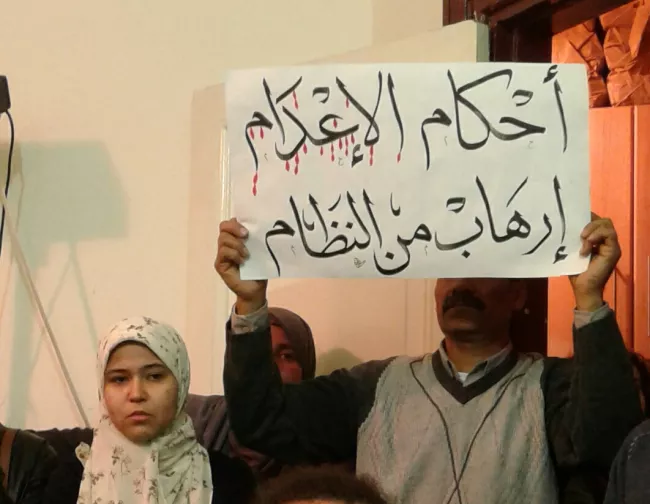 أَحْكام الإعْدَام
إرهَابْ من النظَام